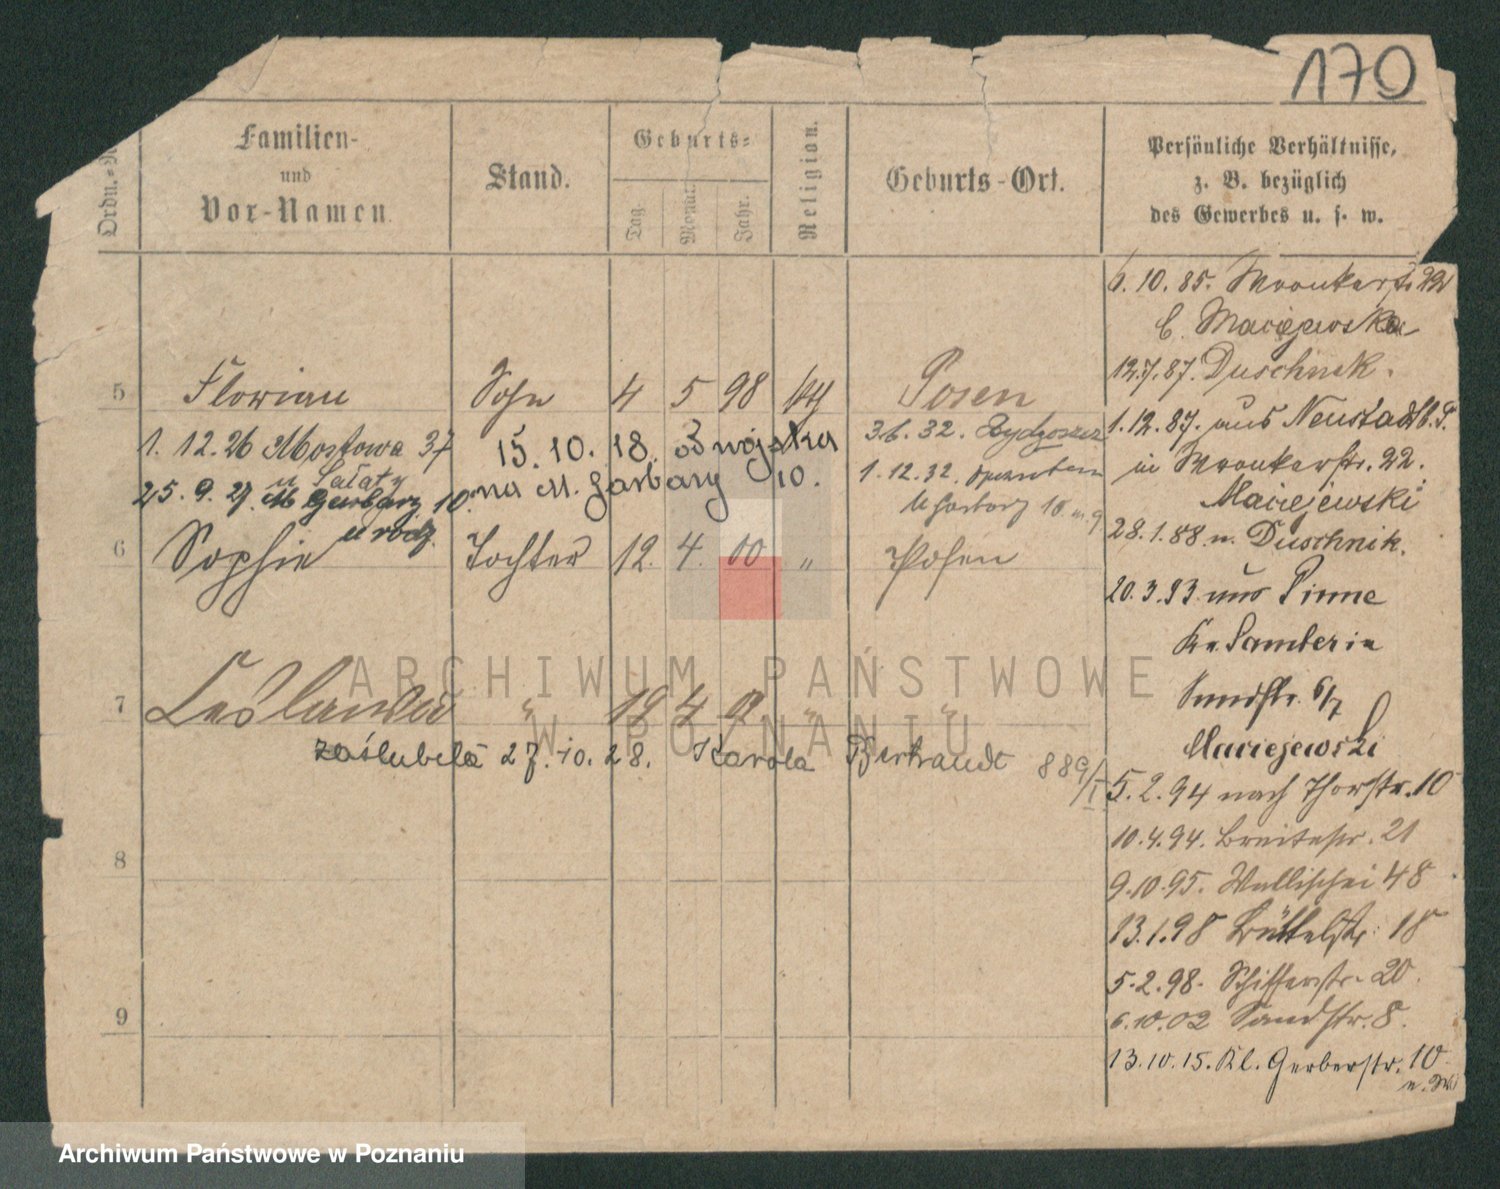 170
Ordn.-N
Familien-
und
Vor-Namen.
Stand.
Geburts-
Tag.
Monat.
Jahr.
Religion.
Geburts-Ort.
Persönliche Verhältnisse,
z. B. bezüglich
des Gewerbes u. s. w.
5 Florian Sohn 4 5 98 Posen
1. 12. 26 Mostowa 37
u Sałaty
25. 9. 27. M Garbary 10.
u rodz.
15. 10. 18. z wojska
na M. Garbary 10.
3.6.32. Bydgoszcz
1.12.32.
M Garbary 10 m. 9
6 Sophie Tochter 12. 4. 00 " Posen
7 Lesława " 19 4 " "
zaślubiła 27. 10. 28. Karola Bertrandt 889/I
8
9
6. 10. 85. Wronkerstr. 22
b. Maciejewska
12.7.87. Duschnik.
1.12.87. aus Neustadt b. P.
in Wronkerstr. 22.
Maciejewski
28.1.88 n. Duschnik.
20.3.93 aus Pinne
Kr. Samter in
Sandstr. 6/7
Maciejewski
5.2.94 nach Thorstr. 10
10.4.94. Breitestr. 21
9.10.95. Wallischei 48
13.1.98 Büttelstr. 18
5.2.98. Schifferstr. 20.
6.10.02 Sandstr. 8.
13.10.15. Kl. Gerberstr. 10
ARCHIWUM PAŃSTWOWE
W POZNANIU
Archiwum Państwowe w Poznaniu